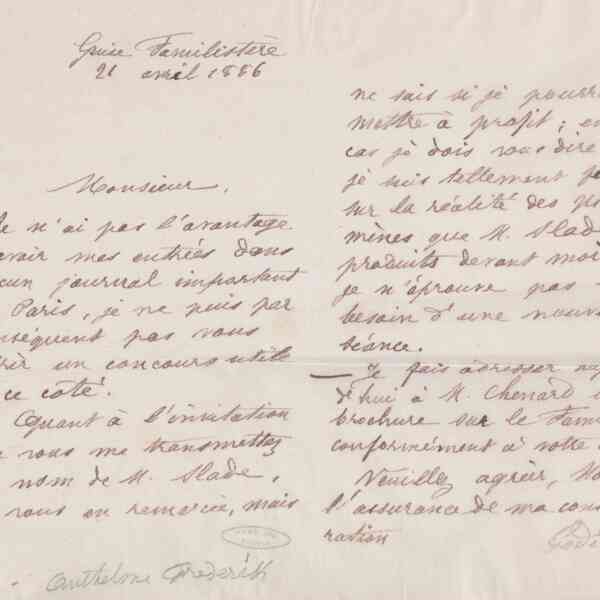 Guise Familistère
21 avril 1886
Monsieur,
Je n'ai pas l'avantage
avoir mes entrées dans
cun journal important
Paris, je ne puis par
nséquent pas vous
rir un concours utile
ce côté.
Quant à l'invitation
vous me transmettez
nom de M. Slade,
vous en remercie, mais
ne sais si je pourr
mettre à profit; en
cas je dois vous dire
je suis tellement
sur la réalité des
mènes que M. Slade
produits devant moi
je n'éprouve pas
besoin d'une nouv
séance.
— Je fais adresser auj
d'hui à M. Chenard
brochure sur le Fami
conformément à votre
Veuillez agréer, Mo
l'assurance de ma cons
ration
Godi
Anthelme Frederik